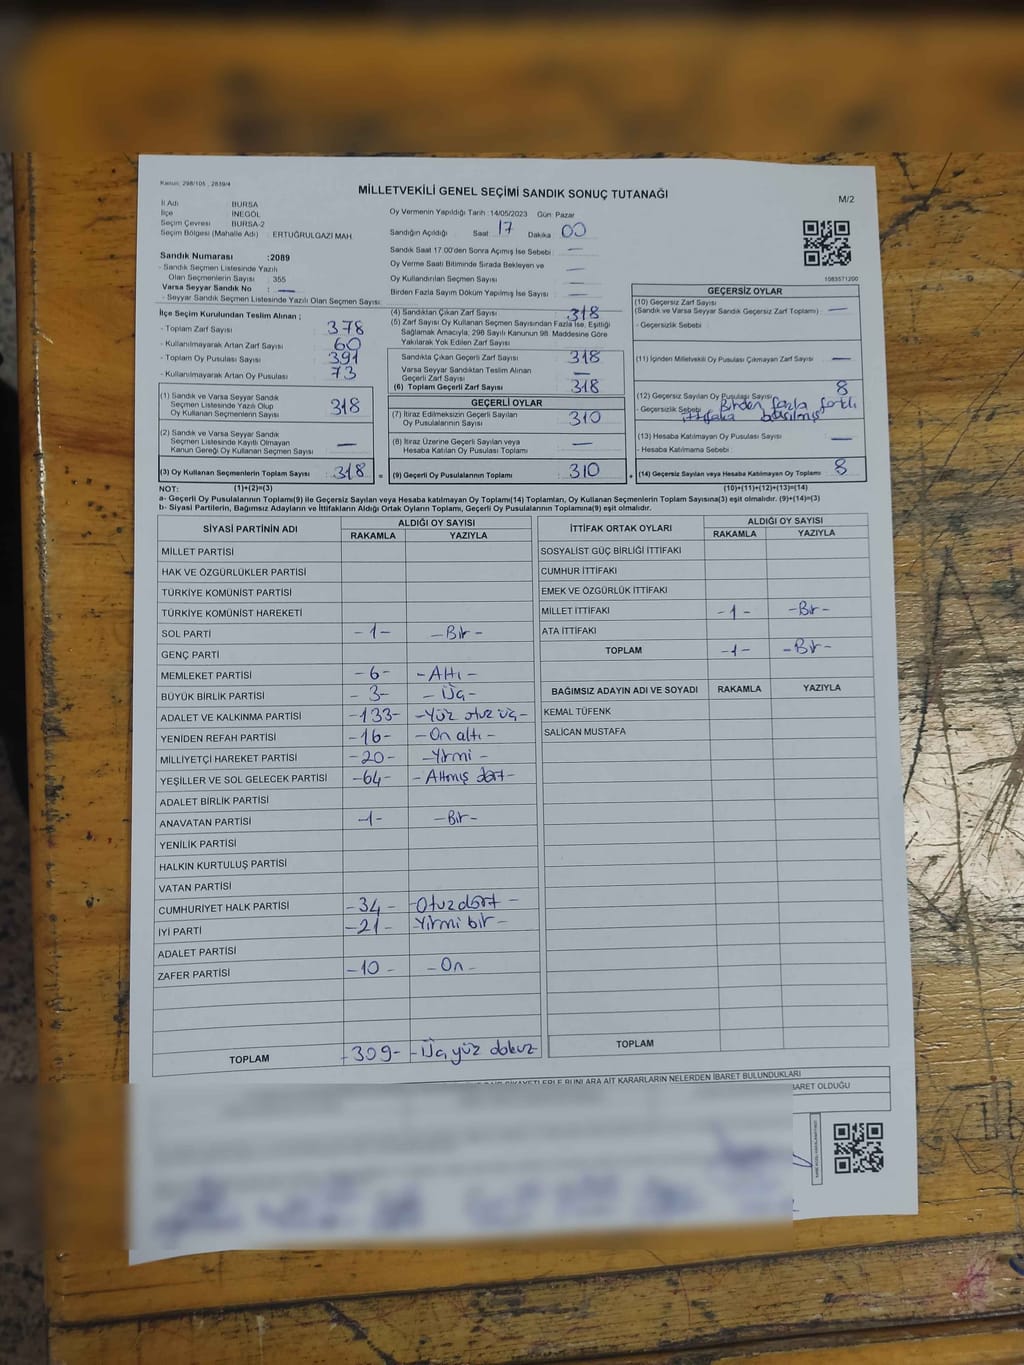 Kanun: 298/105 , 2839/4
MİLLETVEKİLİ GENEL SEÇİMİ SANDIK SONUÇ TUTANAĞI
M/2
İl Adı : BURSA
İlçe : İNEGÖL
Seçim Çevresi : BURSA-2
Seçim Bölgesi (Mahalle Adı) : ERTUĞRULGAZİ MAH.
Oy Vermenin Yapıldığı Tarih : 14/05/2023 Gün: Pazar
Sandığın Açıldığı : Saat 17 Dakika 00
Sandık Saat 17:00'den Sonra Açılmış İse Sebebi : —
Oy Verme Saati Bitiminde Sırada Bekleyen ve
Oy Kullandırılan Seçmen Sayısı : —
Birden Fazla Sayım Döküm Yapılmış İse Sayısı : —
1083571200
Sandık Numarası :2089
- Sandık Seçmen Listesinde Yazılı
Olan Seçmenlerin Sayısı : 355
Varsa Seyyar Sandık No : —
- Seyyar Sandık Seçmen Listesinde Yazılı Olan Seçmen Sayısı:
İlçe Seçim Kurulundan Teslim Alınan ;
- Toplam Zarf Sayısı : 378
- Kullanılmayarak Artan Zarf Sayısı : 60
- Toplam Oy Pusulası Sayısı : 391
- Kullanılmayarak Artan Oy Pusulası : 73
(1) Sandık ve Varsa Seyyar Sandık
Seçmen Listesinde Yazılı Olup
Oy Kullanan Seçmenlerin Sayısı : 318
(2) Sandık ve Varsa Seyyar Sandık
Seçmen Listesinde Kayıtlı Olmayan
Kanun Gereği Oy Kullanan Seçmen Sayısı : —
(3) Oy Kullanan Seçmenlerin Toplam Sayısı : 318
(4) Sandıktan Çıkan Zarf Sayısı : 318
(5) Zarf Sayısı Oy Kullanan Seçmen Sayısından Fazla İse, Eşitliği
Sağlamak Amacıyla, 298 Sayılı Kanunun 98. Maddesine Göre
Yakılarak Yok Edilen Zarf Sayısı :
Sandıkta Çıkan Geçerli Zarf Sayısı : 318
Varsa Seyyar Sandıktan Teslim Alınan
Geçerli Zarf Sayısı : —
(6) Toplam Geçerli Zarf Sayısı : 318
GEÇERLİ OYLAR
(7) İtiraz Edilmeksizin Geçerli Sayılan
Oy Pusulalarının Sayısı : 310
(8) İtiraz Üzerine Geçerli Sayılan veya
Hesaba Katılan Oy Pusulası Toplamı : —
= (9) Geçerli Oy Pusulalarının Toplamı : 310
GEÇERSİZ OYLAR
(10) Geçersiz Zarf Sayısı
(Sandık ve Varsa Seyyar Sandık Geçersiz Zarf Toplamı) : —
- Geçersizlik Sebebi :
(11) İçinden Milletvekili Oy Pusulası Çıkmayan Zarf Sayısı : —
(12) Geçersiz Sayılan Oy Pusulası Sayısı : 8
- Geçersizlik Sebebi : Birden fazla farklı
ittifaka basılmış
(13) Hesaba Katılmayan Oy Pusulası Sayısı : —
- Hesaba Katılmama Sebebi :
+ (14) Geçersiz Sayılan veya Hesaba Katılmayan Oy Toplamı : 8
NOT: (1)+(2)=(3)
(10)+(11)+(12)+(13)=(14)
a- Geçerli Oy Pusulalarının Toplamı(9) ile Geçersiz Sayılan veya Hesaba katılmayan Oy Toplamı(14) Toplamları, Oy Kullanan Seçmenlerin Toplam Sayısına(3) eşit olmalıdır. (9)+(14)=(3)
b- Siyasi Partilerin, Bağımsız Adayların ve İttifakların Aldığı Ortak Oyların Toplamı, Geçerli Oy Pusulalarının Toplamına(9) eşit olmalıdır.
SİYASİ PARTİNİN ADI ALDIĞI OY SAYISI
RAKAMLA YAZIYLA
MİLLET PARTİSİ
HAK VE ÖZGÜRLÜKLER PARTİSİ
TÜRKİYE KOMÜNİST PARTİSİ
TÜRKİYE KOMÜNİST HAREKETİ
SOL PARTİ -1- -Bir-
GENÇ PARTİ
MEMLEKET PARTİSİ -6- -Altı-
BÜYÜK BİRLİK PARTİSİ -3- -Üç-
ADALET VE KALKINMA PARTİSİ -133- -Yüz otuz üç-
YENİDEN REFAH PARTİSİ -16- -On altı-
MİLLİYETÇİ HAREKET PARTİSİ -20- -Yirmi-
YEŞİLLER VE SOL GELECEK PARTİSİ -64- -Altmış dört-
ADALET BİRLİK PARTİSİ
ANAVATAN PARTİSİ -1- -Bir-
YENİLİK PARTİSİ
HALKIN KURTULUŞ PARTİSİ
VATAN PARTİSİ
CUMHURİYET HALK PARTİSİ -34- -Otuz dört-
İYİ PARTİ -21- -Yirmi bir-
ADALET PARTİSİ
ZAFER PARTİSİ -10- -On-
TOPLAM -309- -Üç yüz dokuz-
İTTİFAK ORTAK OYLARI ALDIĞI OY SAYISI
RAKAMLA YAZIYLA
SOSYALİST GÜÇ BİRLİĞİ İTTİFAKI
CUMHUR İTTİFAKI
EMEK VE ÖZGÜRLÜK İTTİFAKI
MİLLET İTTİFAKI -1- -Bir-
ATA İTTİFAKI
TOPLAM -1- -Bir-
BAĞIMSIZ ADAYIN ADI VE SOYADI RAKAMLA YAZIYLA
KEMAL TÜFENK
SALİCAN MUSTAFA
TOPLAM
KARARLARIN NELERDEN İBARET BULUNDUKLARI
OLDUĞU